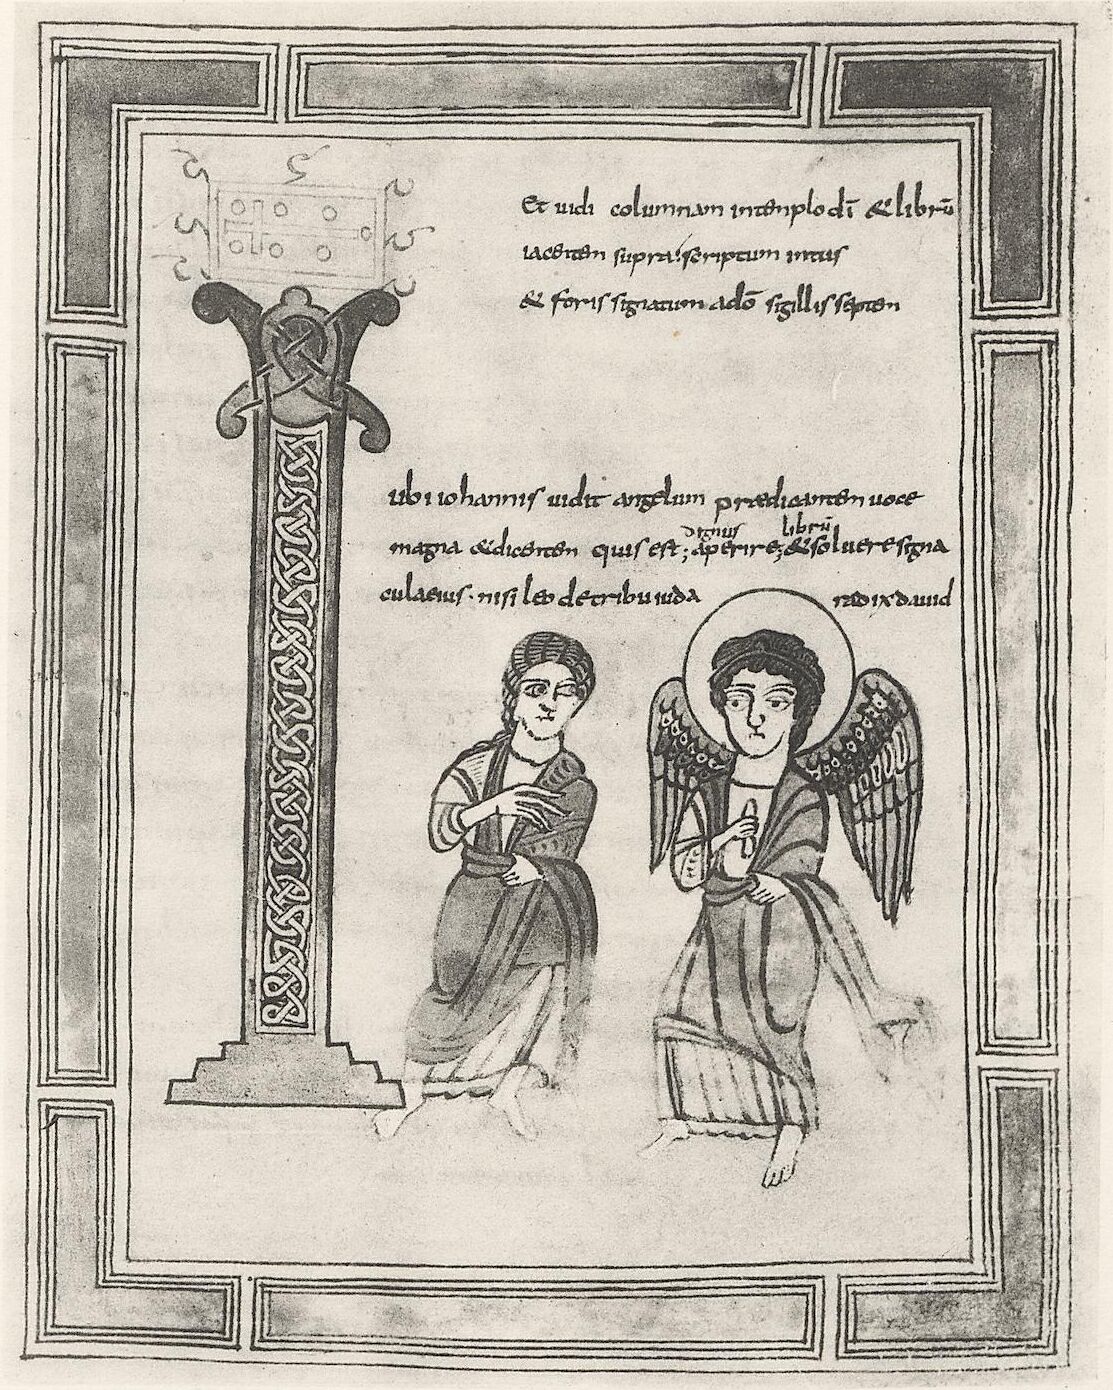 Et uidi columnam intemplo dī & librū
iacentem supra scriptum intus
& foris signatum adō sigillis septem
ubi iohannis uidit angelum prædicantem uoce
magna &dicentem quis est ; dignus aperire ; librū &soluere signa
cula eius · nisi leo detribu iuda radix dauid